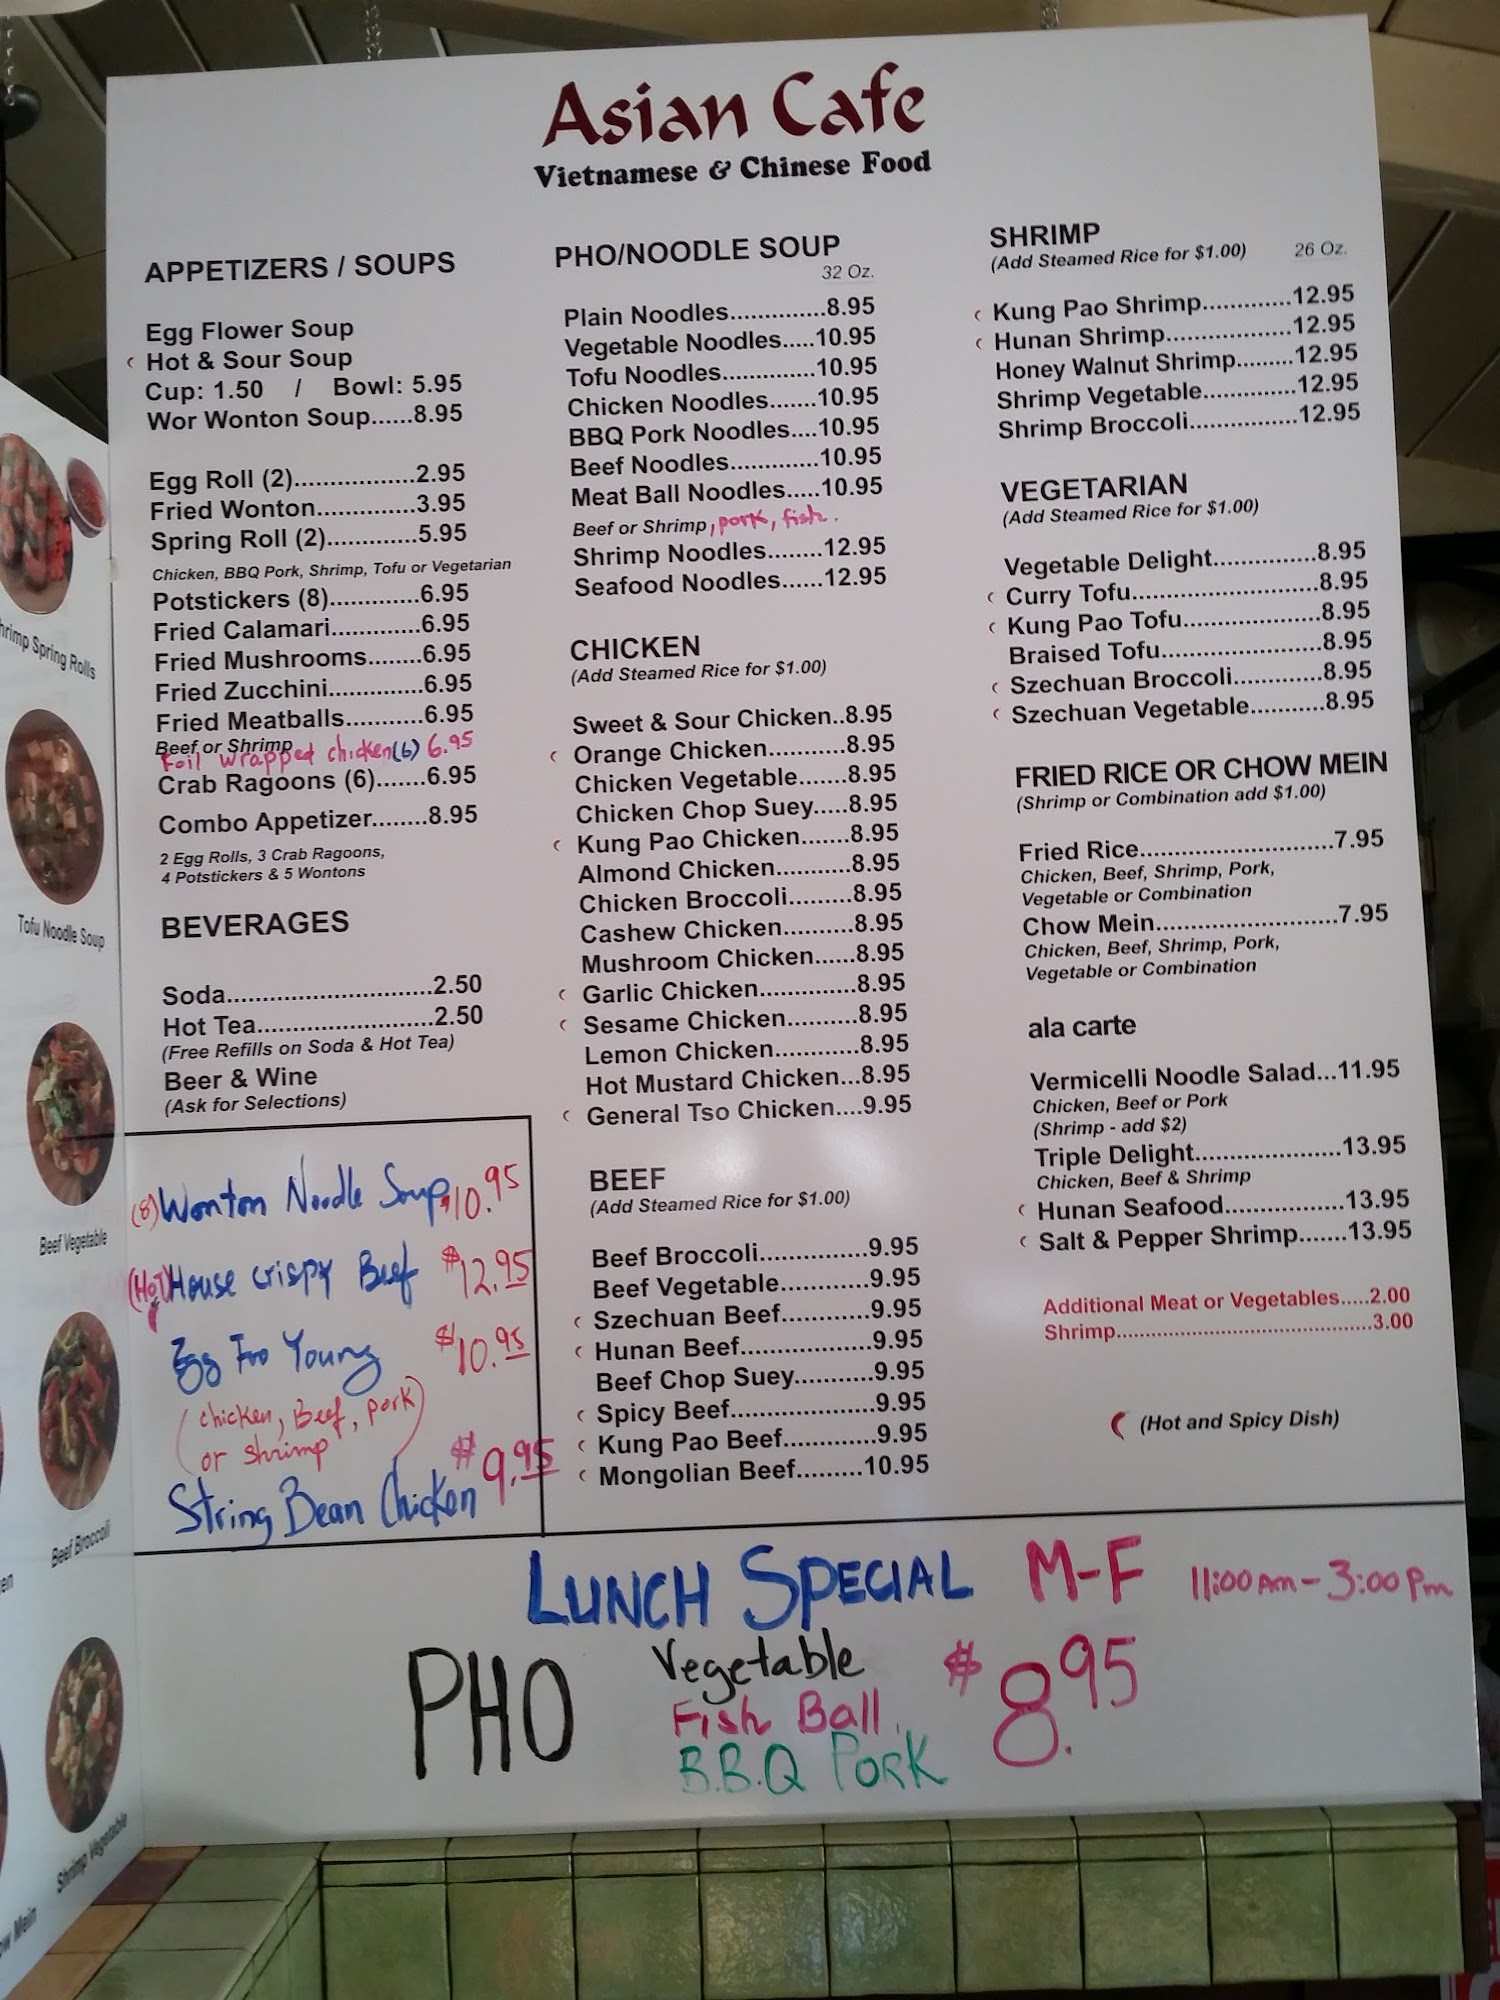 Asian Cafe
Vietnamese & Chinese Food
APPETIZERS / SOUPS
Egg Flower Soup
Hot & Sour Soup
Cup: 1.50 / Bowl: 5.95
Wor Wonton Soup......8.95
Egg Roll (2).................2.95
Fried Wonton..............3.95
Spring Roll (2).............5.95
Chicken, BBQ Pork, Shrimp, Tofu or Vegetarian
Potstickers (8).............6.95
Fried Calamari.............6.95
Fried Mushrooms........6.95
Fried Zucchini..............6.95
Fried Meatballs............6.95
Beef or Shrimp
Foil wrapped chicken(6) 6.95
Crab Ragoons (6).......6.95
Combo Appetizer........8.95
2 Egg Rolls, 3 Crab Ragoons,
4 Potstickers & 5 Wontons
BEVERAGES
Soda.............................2.50
Hot Tea.........................2.50
(Free Refills on Soda & Hot Tea)
Beer & Wine
(Ask for Selections)
(8) Wonton Noodle Soup $10.95
(HOT) House crispy Beef $12.95
Egg Foo Young $10.95
(chicken, Beef, pork
or shrimp)
String Bean Chicken $9.95
PHO/NOODLE SOUP
32 Oz.
Plain Noodles..............8.95
Vegetable Noodles.....10.95
Tofu Noodles..............10.95
Chicken Noodles.......10.95
BBQ Pork Noodles....10.95
Beef Noodles.............10.95
Meat Ball Noodles.....10.95
Beef or Shrimp, pork, fish.
Shrimp Noodles........12.95
Seafood Noodles......12.95
CHICKEN
(Add Steamed Rice for $1.00)
Sweet & Sour Chicken..8.95
Orange Chicken...........8.95
Chicken Vegetable.......8.95
Chicken Chop Suey.....8.95
Kung Pao Chicken.......8.95
Almond Chicken...........8.95
Chicken Broccoli.........8.95
Cashew Chicken..........8.95
Mushroom Chicken......8.95
Garlic Chicken..............8.95
Sesame Chicken..........8.95
Lemon Chicken............8.95
Hot Mustard Chicken...8.95
General Tso Chicken....9.95
BEEF
(Add Steamed Rice for $1.00)
Beef Broccoli................9.95
Beef Vegetable.............9.95
Szechuan Beef.............9.95
Hunan Beef...................9.95
Beef Chop Suey...........9.95
Spicy Beef.....................9.95
Kung Pao Beef.............9.95
Mongolian Beef.........10.95
SHRIMP
(Add Steamed Rice for $1.00) 26 Oz.
Kung Pao Shrimp.............12.95
Hunan Shrimp..................12.95
Honey Walnut Shrimp........12.95
Shrimp Vegetable.............12.95
Shrimp Broccoli................12.95
VEGETARIAN
(Add Steamed Rice for $1.00)
Vegetable Delight...............8.95
Curry Tofu...........................8.95
Kung Pao Tofu....................8.95
Braised Tofu.......................8.95
Szechuan Broccoli.............8.95
Szechuan Vegetable...........8.95
FRIED RICE OR CHOW MEIN
(Shrimp or Combination add $1.00)
Fried Rice............................7.95
Chicken, Beef, Shrimp, Pork,
Vegetable or Combination
Chow Mein..........................7.95
Chicken, Beef, Shrimp, Pork,
Vegetable or Combination
ala carte
Vermicelli Noodle Salad...11.95
Chicken, Beef or Pork
(Shrimp - add $2)
Triple Delight.....................13.95
Chicken, Beef & Shrimp
Hunan Seafood.................13.95
Salt & Pepper Shrimp.......13.95
Additional Meat or Vegetables.....2.00
Shrimp.............................................3.00
(Hot and Spicy Dish)
LUNCH SPECIAL M-F 11:00 AM - 3:00 Pm
PHO Vegetable $8.95
Fish Ball
B.B.Q PORK
Spring Rolls
Tofu Noodle Soup
Beef Vegetable
Beef Broccoli
Shrimp Vegetable